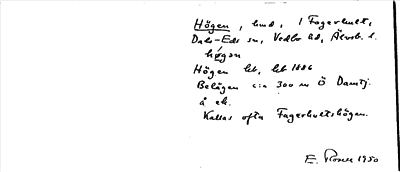 Högen, hmd, i Fagerhult,
Dals-Eds sn, Vedbo hd, Älvsb. l.
høgan
Högen kk, kk 1686
Belägen c:a 300 m Ö Damtj.
å ek.
Kallas ofta Fagerhultshögen.
E. Rosell 1950